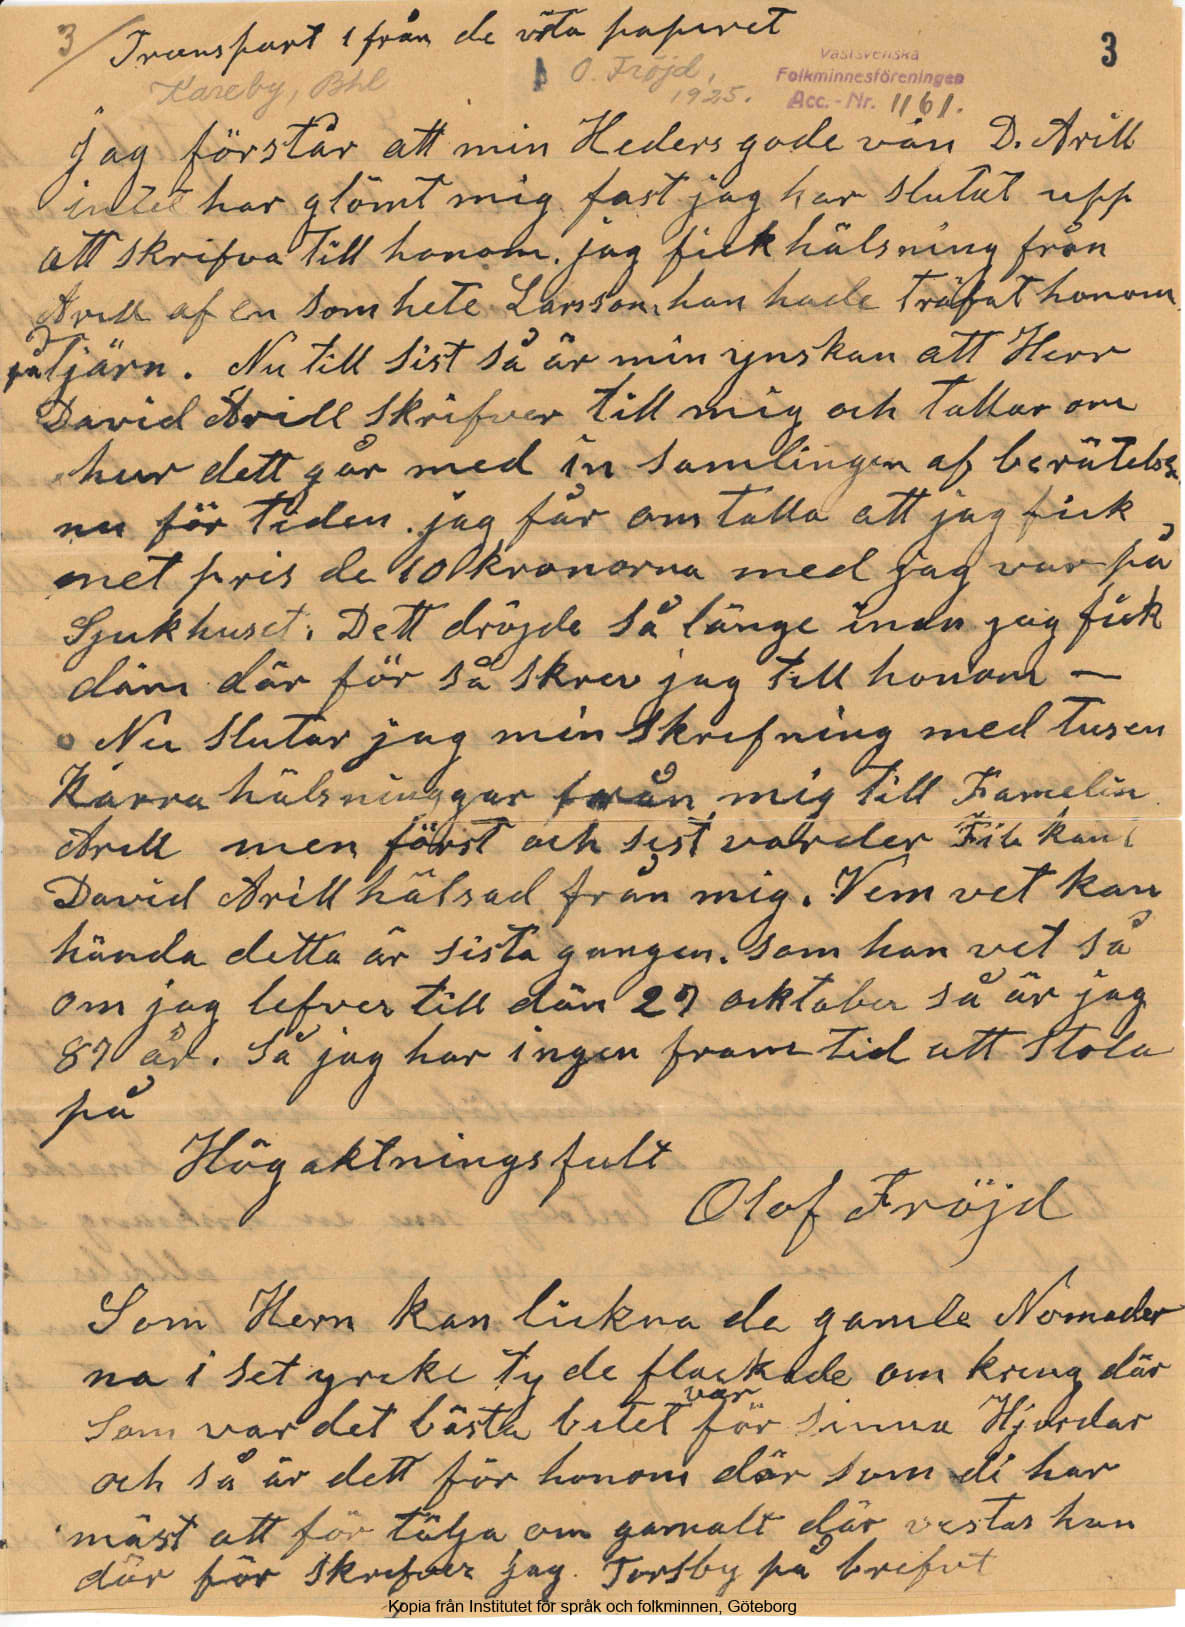 3
Transport 1 från de vita papiret
3
Kareby, Bhl
O. Fröjd,
1925.
Västsvenska
Folkminnesföreningen
Acc. - Nr. 1161.
jag förstår att min Heders gode vän D. Arill
intet har glömt mig fast jag har slutat upp
att skrifva till honom. jag fick hälsning från
Arill af en som hete Larsson. han hade träfat honom
på Tjärn. Nu till sist så är min ynskan att Herr
David Arill skrifver till mig och tallar om
hur dett går med in samlingen af berätelse
nu för tiden. jag får om talla att jag fick
met pris de 10 kronorna med jag var på
Sjukhuset. Dett dröjde så länge inan jag fick
däm där för så skrev jag till honom —
Nu slutar jag min skrifning med tusen
Kärra hälsninggar från mig till Famelin
Arill men först och sist varder Fil kand
David Arill hälsad från mig. Vem vet kan
hända detta är sista gangen. som han vet så
om jag lefver till dän 27 ocktober så är jag
87 år. Så jag har ingen fram tid att Stola
på
Högaktningsfult
Olof Fröjd
Som Hern kan lickna de gamle Nomader
na i set yrcke ty de flackade om kring där
var
Som var det bästa betet för sinna Hjordar
och så är dett för honom där som di har
mäst att för tälja om gamalt där vistas han
där för skrifver jag Torsby på brefvet
Kopia från Institutet för språk och folkminnen, Göteborg